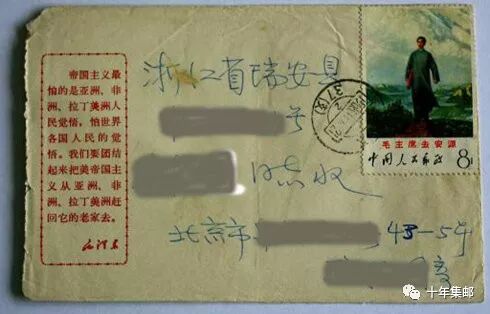 帝国主义最
怕的是亚洲、非
洲、拉丁美洲人
民觉悟，怕世界
各国人民的觉
悟。我们要团结
起来把美帝国主
义从亚洲、非
洲、拉丁美洲赶
回它的老家去。
毛泽东
浙江省瑞安县
号
收
北京市
43-54
毛主席去安源
中国人民邮政 8分
十年集邮